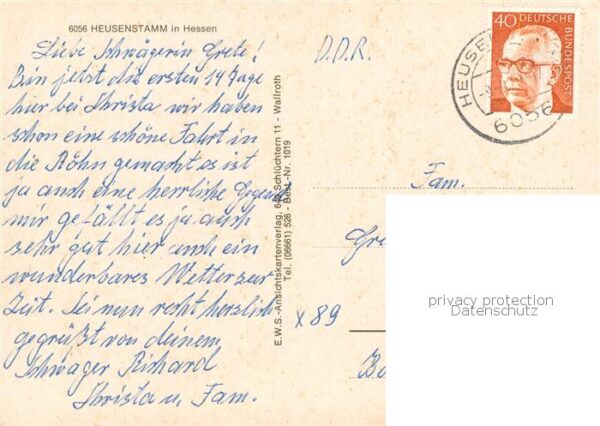 6056 HEUSENSTAMM in Hessen
Liebe Schwägerin Grete!
Bin jetzt die ersten 14 Tage
hier bei Christa wir haben
schon eine schöne Fahrt in
die Röhn gemacht es ist
ja auch eine herrliche Gegend
mir gefällt es ja auch
sehr gut hier und ein
wunderbares Wetter zur
Zeit. Sei nun recht herzlich
gegrüßt von deinem
Schwager Richard
Christa u. Fam.
E.W.S.-Ansichtskartenverlag, Schlüchtern 11 - Wallroth
Tel. (06661) 526 - Best.-Nr. 1019
D.D.R.
40 DEUTSCHE
BUNDESPOST
HEUSE
6056
Fam.
Gre
x 89
privacy protection
Datenschutz